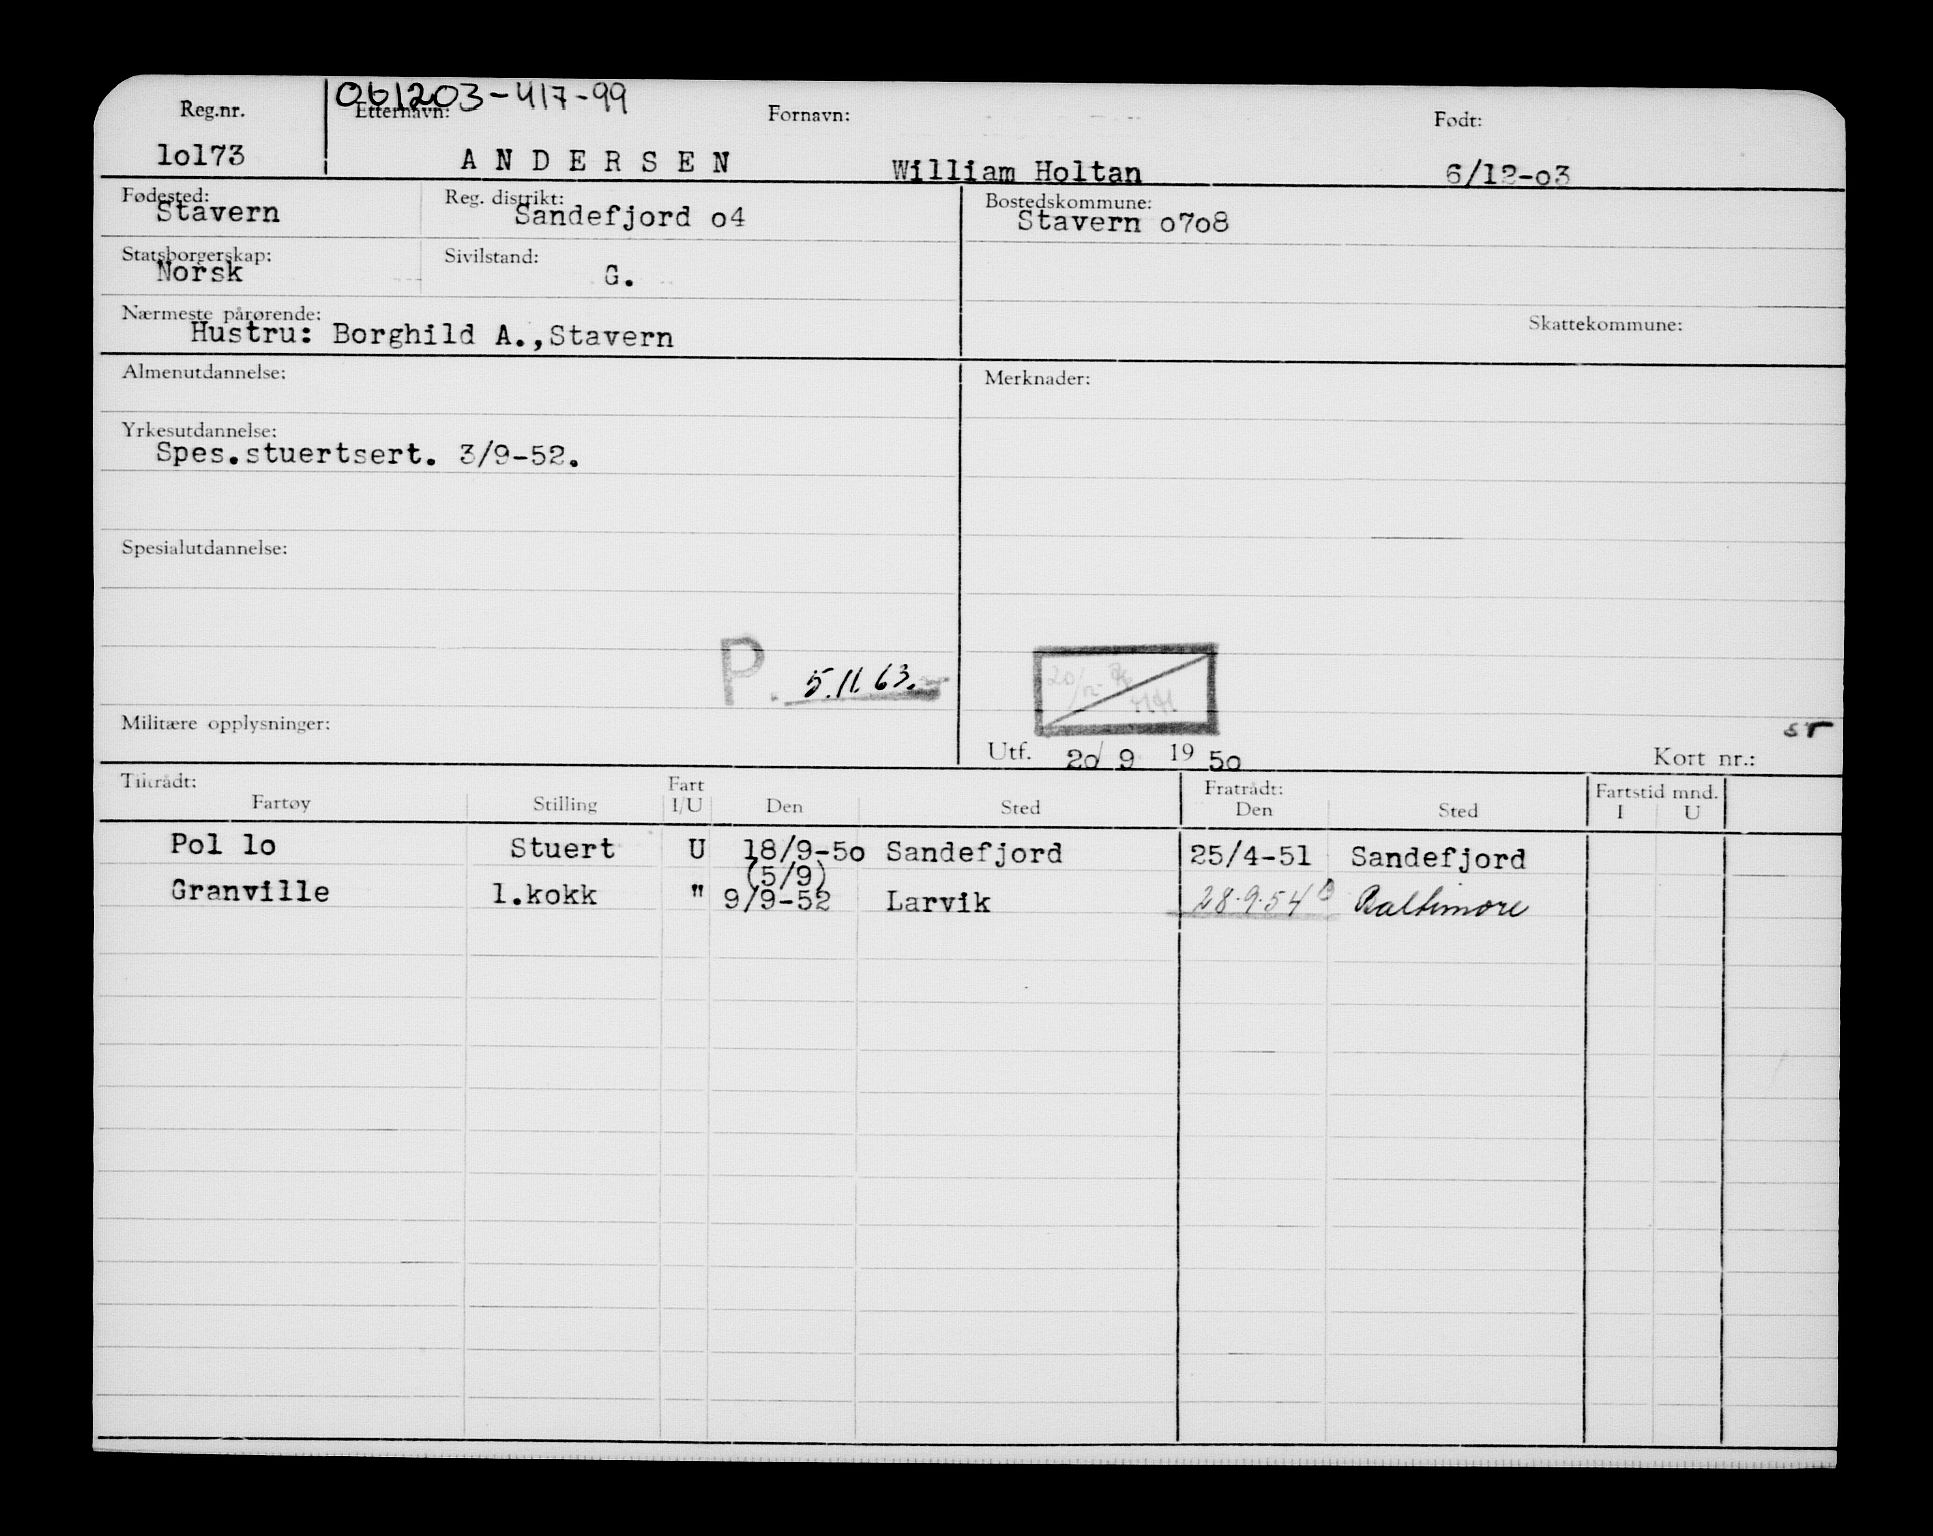 061203-417-99
Reg.nr. Etternavn: Fornavn: Født:
lol73 A N D E R S E N William Holtan 6/12-o3
Fødested: Reg. distrikt: Bostedskommune:
Stavern Sandefjord o4 Stavern o7o8
Statsborgerskap: Sivilstand:
Norsk G.
Nærmeste pårørende: Skattekommune:
Hustru: Borghild A.,Stavern
Almenutdannelse: Merknader:
Yrkesutdannelse:
Spes.stuertsert. 3/9-52.
Spesialutdannelse:
P. 5.11.63.
Militære opplysninger:
Utf. 2o/ 9 19 5o Kort nr.:
Tiltrådt: Fart Fratrådt: Fartstid mnd.
Fartøy Stilling I/U Den Sted Den Sted I U
Pol lo Stuert U 18/9-5o Sandefjord 25/4-51 Sandefjord
(5/9)
Granville 1.kokk " 9/9-52 Larvik 28.9.54 Baltimore